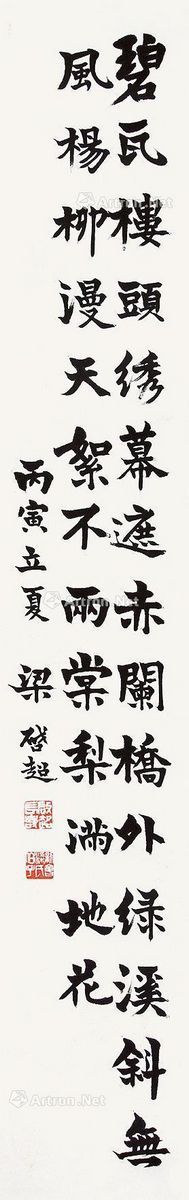 碧瓦樓頭綉幕遮赤闌橋外绿溪斜無
風楊柳漫天絮不雨棠梨滿地花
丙寅立夏 梁啓超
Artron.Net
Artron.Net